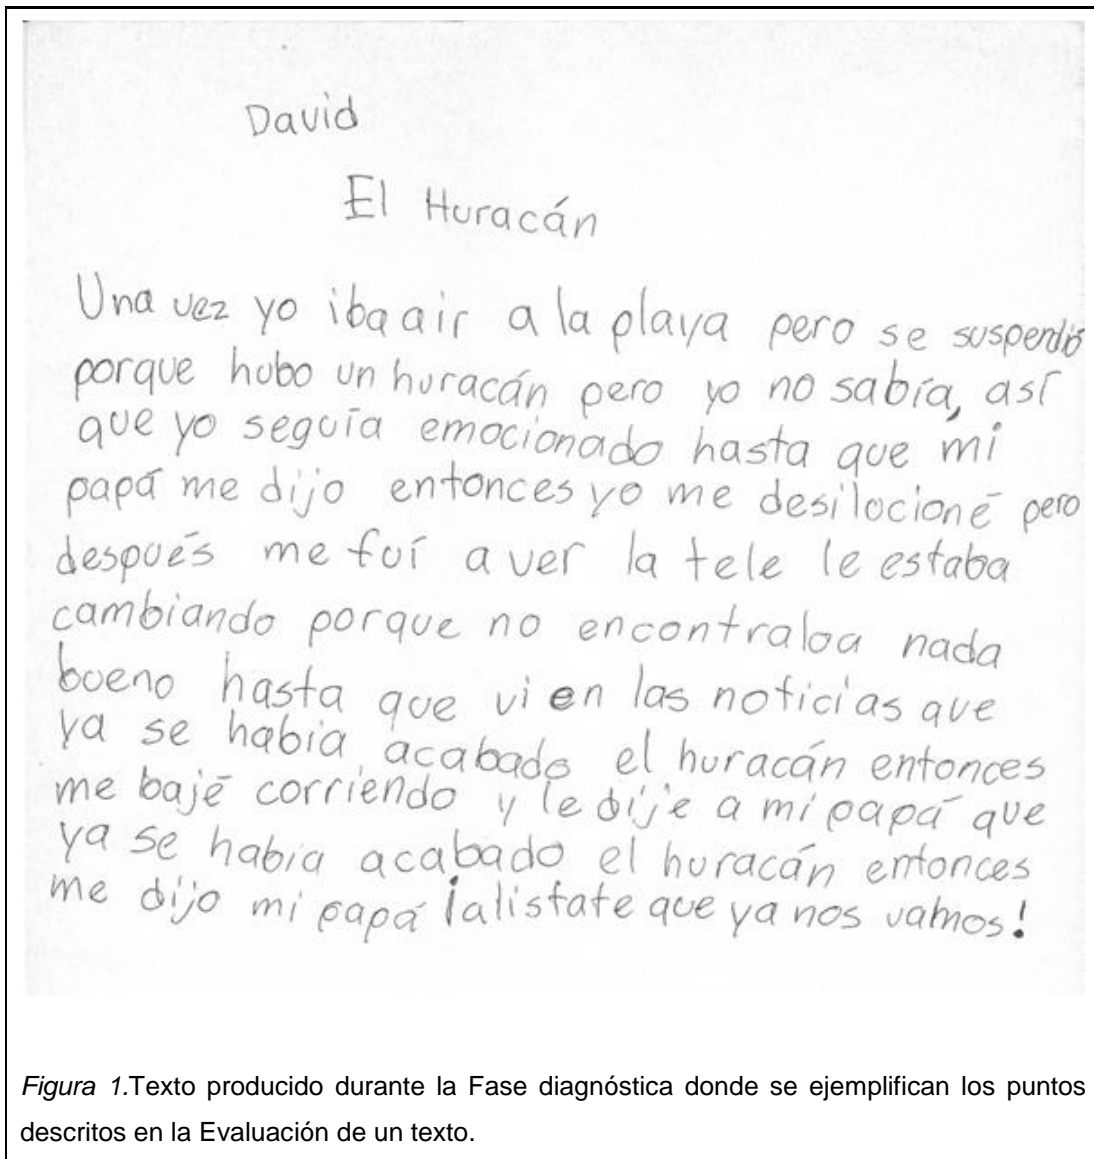 David
El Huracán
Una vez yo ibaair a la playa pero se suspendió
porque hubo un huracán pero yo no sabía, así
que yo seguía emocionado hasta que mi
papá me dijo entonces yo me desilocioné pero
después me fuí a ver la tele le estaba
cambiando porque no encontraba nada
bueno hasta que vi en las noticias que
ya se habia acabado el huracán entonces
me bajé corriendo y le dije a mi papá que
ya se habia acabado el huracán entonces
me dijo mi papá ¡alistate que ya nos vamos!
Figura 1.Texto producido durante la Fase diagnóstica donde se ejemplifican los puntos
descritos en la Evaluación de un texto.